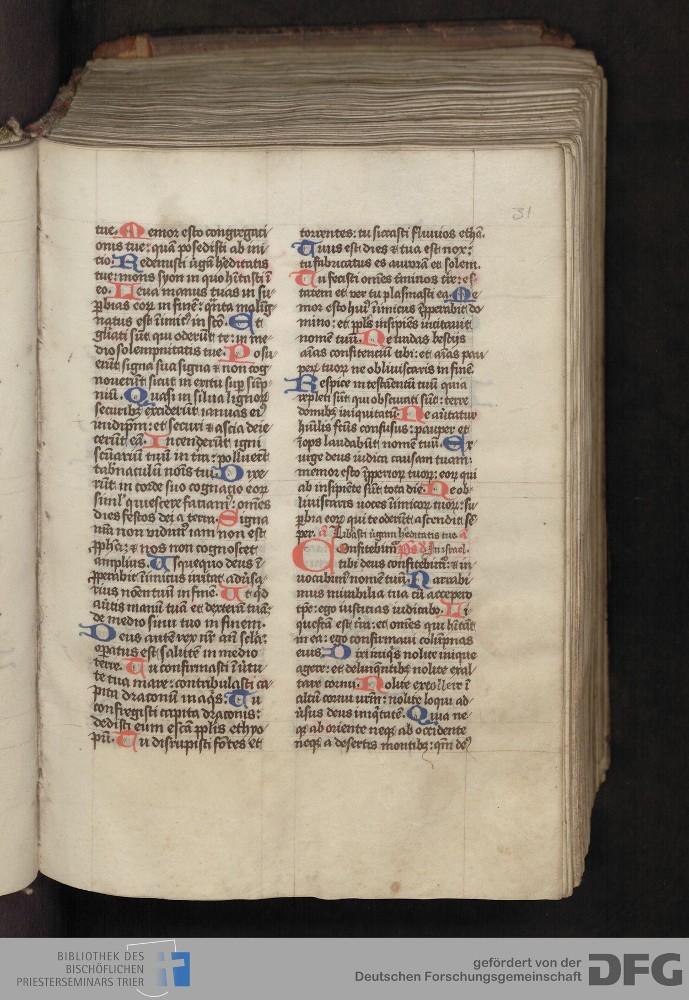 31
tue. Memor esto congregati
onis tue: quā posedisti ab ini
cio. Redemisti ūgaz hēditatis
tue: mons syon in quo hītasti ī
eo. Leua manus tuas in su
ꝑbias eoꝝ in finē: qͣnta malig
natus est īimicꝰ in scō. Et
gl̄iati sūt qui oderūt te: in me
dio solempnitatis tue. Posu
erūt signa sua signa ⁊ non cog
nouerūt sicut in exitu suꝑ sūm
nū. Quasi in silua lignoꝝ
securibꝫ exciderūt ianuas eiꝰ
in idipm̄: et securi ⁊ ascia deie
cerūt eā. Incenderūt igni
sc̄uariū tuū in tr̄a: polluerūt
tab̄naculū nōis tui. Dixe
rūt in corde suo cognatio eoꝝ
simul quiescere faciamꝰ: om̄es
dies festos dei a terra. Signa
nr̄a non vidimꝰ iam non est
ꝓpheta: ⁊ nos non cognoscet
amplius. Usquequo deus ī
ꝓperabit īimicus irritat aduˀsa
rius nōen tuū in finē. Ut qͥd
aūtis manū tuā et dexterā tuā:
de medio sinu tuo in finem.
Deus autē rex nr̄ an̄ scl̄a:
oꝑatus est salutē in medio
terre. Tu confirmasti ī ūtu
te tua mare: contribulasti ca
pita draconū in aqͥs. Tu
confregisti capita draconis:
dedisti eum escā ppl̄is ethyo
pū. Tu disrupisti fōtes et
torrentes: tu siccasti fluuios ethā.
Tuus est dies ⁊ tua est nox:
tu fabricatus es auroram et solem.
Tu fecisti om̄es t̄minos tr̄e: es
tatem et ver tu plasmasti ea. Me
mor esto huiꝰ īimicus īproꝑabit do
mino: et ppl̄s insipiēs incitauit
nomen tuū. Ne tradas bestijs
aīas confitentiū tibi: et aīas pau
peꝝ tuoꝝ ne obliuiscaris in finē.
Respice in testāmentū tuū quia
repleti sūt qui obscurati sūt: terre
domibꝫ iniquitatū. Ne aūtatur
hūilis fctūs confusus: pauper et
īops laudabūt nomen tuū. Ex
urge deus iudica causam tuam:
memor esto īproꝑioꝝ tuoꝝ: eoꝝ qui
ab insipiēte sūt tota die. Ne ob
liuiscaris uoces īimicoꝝ tuoꝝ: su
ꝑbia eoꝝ qui te oderūt ascendit sē
per. a Libasti ūgam hēditatis tue. a
Confitebimꝰ In israel.
tibi deus confitebimꝰ: ⁊ in
uocabimꝰ nomen tuū. Narrabi
mus mirabilia tua cū accepero
tp̄e: ego iusticias iudicabo. Li
quefcā est tr̄a: et om̄es qui hītāt
in ea: ego confirmaui colūpnas
eius. Dixi iniqͥs nolite inique
agere: et delinqͣntibꝫ nolite exal
tare cornu. Nolite extollere ī
altū cornu urm̄: nolite loqui ad
uˀsus deus iniqͥtatē. Quia ne
qꝫ ab oriente neqꝫ ab occidente
neqꝫ a desertis montibꝫ: qm̄ deꝰ
BIBLIOTHEK DES
BISCHÖFLICHEN
PRIESTERSEMINARS TRIER
gefördert von der
Deutschen Forschungsgemeinschaft
DFG